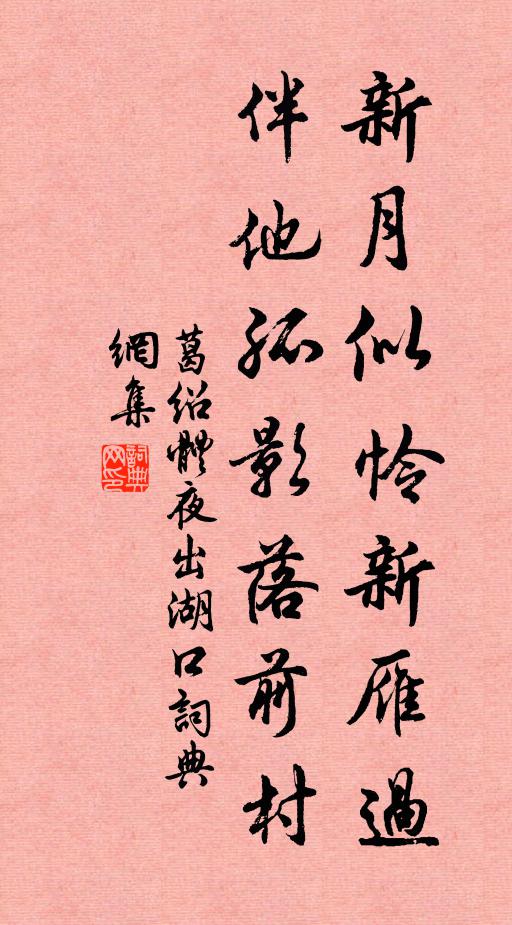 新月似怜新雁過
伴他孤影落前村
葛绍體夜出湖口詞典
網集
詞典
网印